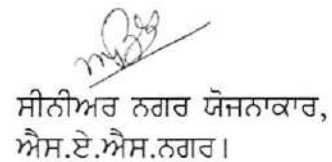 ਸੀਨੀਅਰ ਨਗਰ ਯੋਜਨਾਕਾਰ,
ਐਸ.ਏ.ਐਸ.ਨਗਰ।